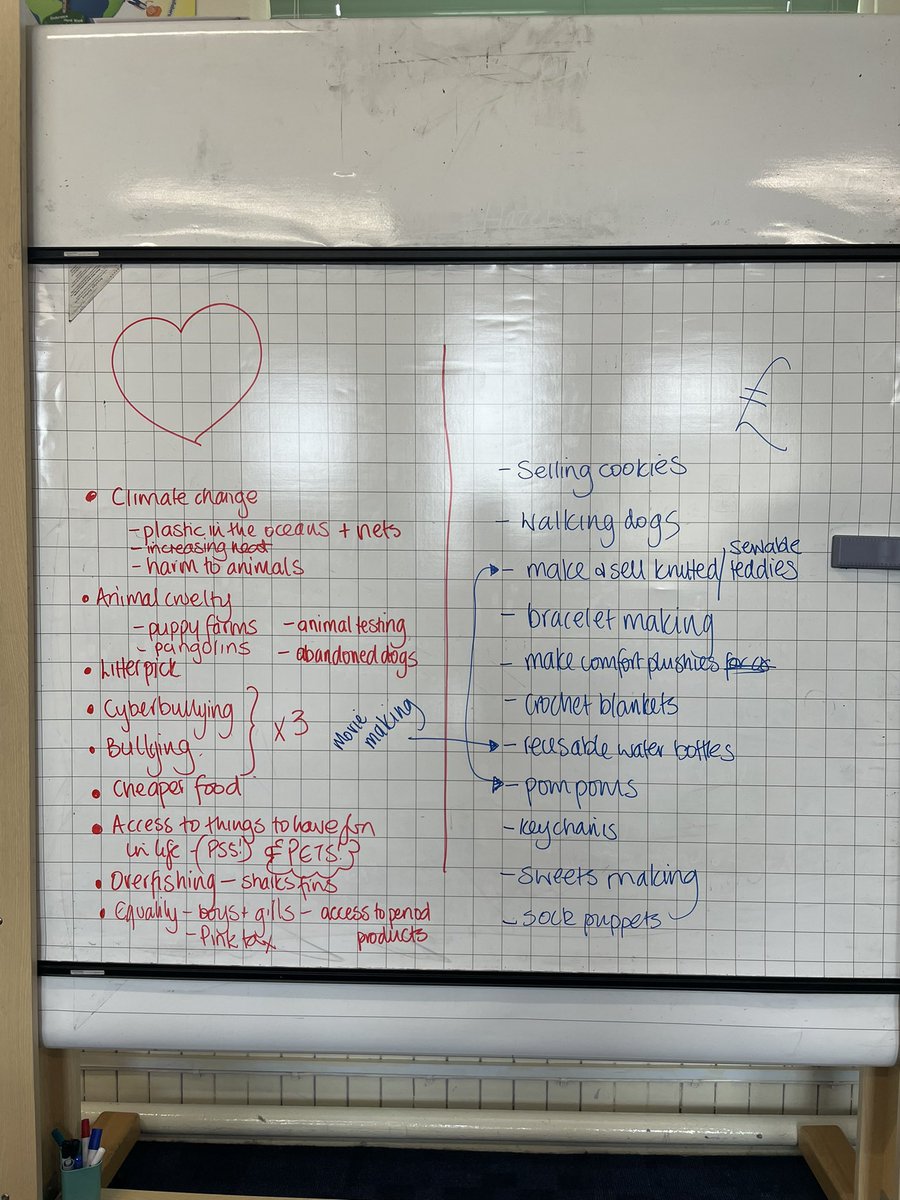 • Climate change
- plastic in the oceans + nets
- increasing heat
- harm to animals
• Animal cruelty
- puppy farms - animal testing
- pangolins - abandoned dogs
• Litter pick
• Cyberbullying
• Bullying
x 3
• Cheaper food
• Access to things to have fun
in life - (PS5!) & PETS!
• Overfishing - sharks fins
• Equality - boys + girls - access to period
products
- Pink tax
Movie
making
£
- Selling cookies
- Walking dogs
- make & sell knitted / sewable
teddies
- bracelet making
- make comfort plushies
- crochet blankets
- reusable water bottles
- pom poms
- keychains
- sweets making
- sock puppets